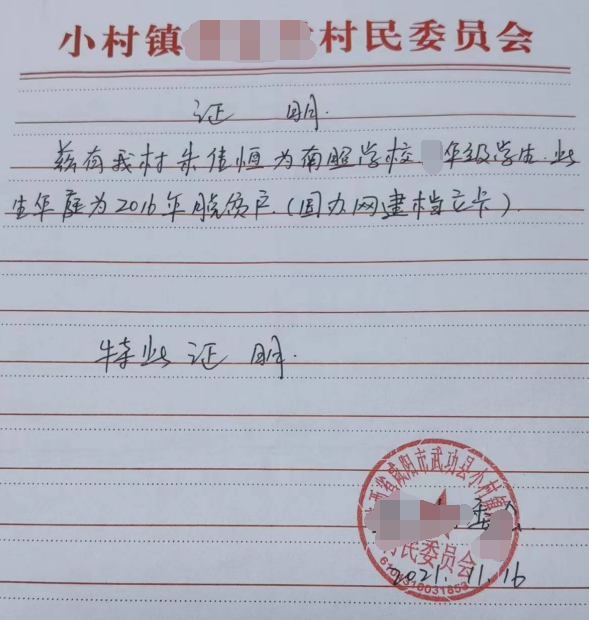 小村镇 村民委员会
证 明.
兹有我村朱佳恒为南照学校 年级学生.此
生年庭为2016年脱贫户.(国办网建档立卡).
特此证明.
西省咸阳市武功县小村镇
村民委员会
委会
2021.11.16